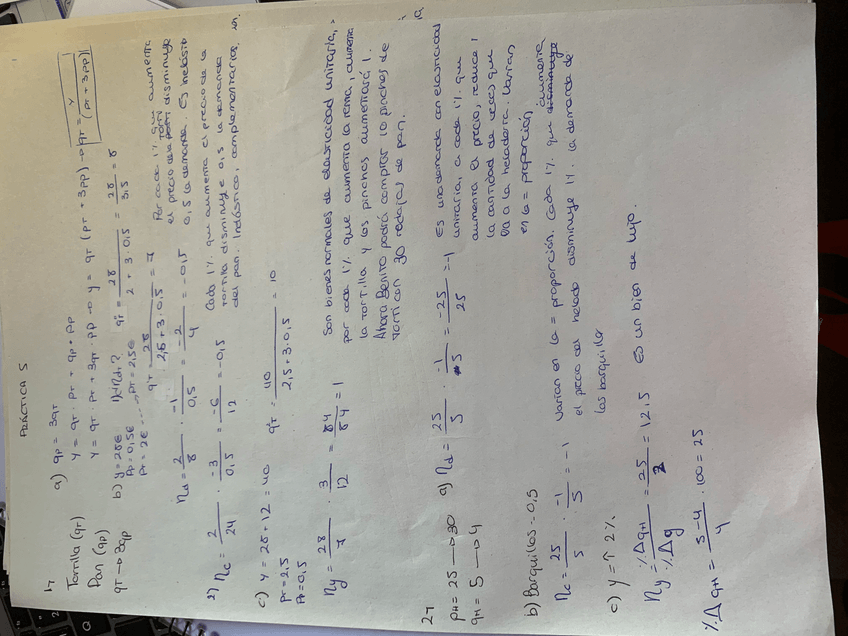 PRÁCTICA 5
1)
Tortilla (qT)
Pan (qp)
qT → 3qp
a) qp = 3qT
Y = qT · PT + qp · PP
Y = qT · PT + 3qT · PP → Y = qT (PT + 3PP) → qT = Y / (PT + 3PP)
b) Y = 28€
PP = 0,5€
PT = 2€ → PT = 2,5€
qT = 28 / 2 + 3 · 0,5 = 28 / 3,5 = 8
qT = 28 / 2,5 + 3 · 0,5 = 7
nd = 2 / 8 · -1 / 0,5 = -2 / 4 = -0,5
Por cada 1% que aumenta
el precio de la torti disminuye
0,5 la demanda. Es inelástio
2) nc = 2 / 24 · -3 / 0,5 = -6 / 12 = -0,5
Cada 1% que aumenta el precio de la
tortilla disminuye 0,5 la demanda
del pan. Inelástico, complementarios.
c) Y = 28 + 12 = 40
PT = 2,5
PP = 0,5
qT = 40 / 2,5 + 3 · 0,5 = 10
ny = 28 / 7 · 3 / 12 = 84 / 84 = 1
Son bienes normales de elasticidad unitaria,
por cada 1% que aumenta la renta, aumenta
la tortilla y los pinchos aumentará 1.
Ahora Benito podrá comprar 10 pinchos de
torti con 30 rodajas de pan.
2)
PH = 25 → 30
qH = 5 → 4
a) nd = 25 / 5 · -1 / 5 = -25 / 25 = -1
Es una demanda con elasticidad
unitaria, a cada 1% que
aumenta el precio, reduce 1
la cantidad de veces que
va a la heladería. Varían
en la = proporción
b) Barquillos = 0,5
nc = 25 / 5 · -1 / 5 = -1
Varían en la = proporción. Cada 1% que disminuye aumenta
el precio del helado disminuye 1% la demanda de
los barquillos
c) Y = ↑ 2%
ny = %Δ qH / %Δ y = 25 / 2 = 12,5 Es un bien de lujo.
%Δ qH = 5-4 / 4 · 100 = 25